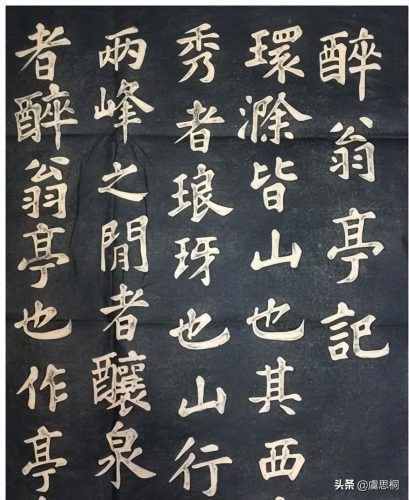 醉翁亭記
環滁皆山也其西
秀者琅玡也山行
兩峰之閒者釀泉
者醉翁亭也作亭
头条 @虞思桐